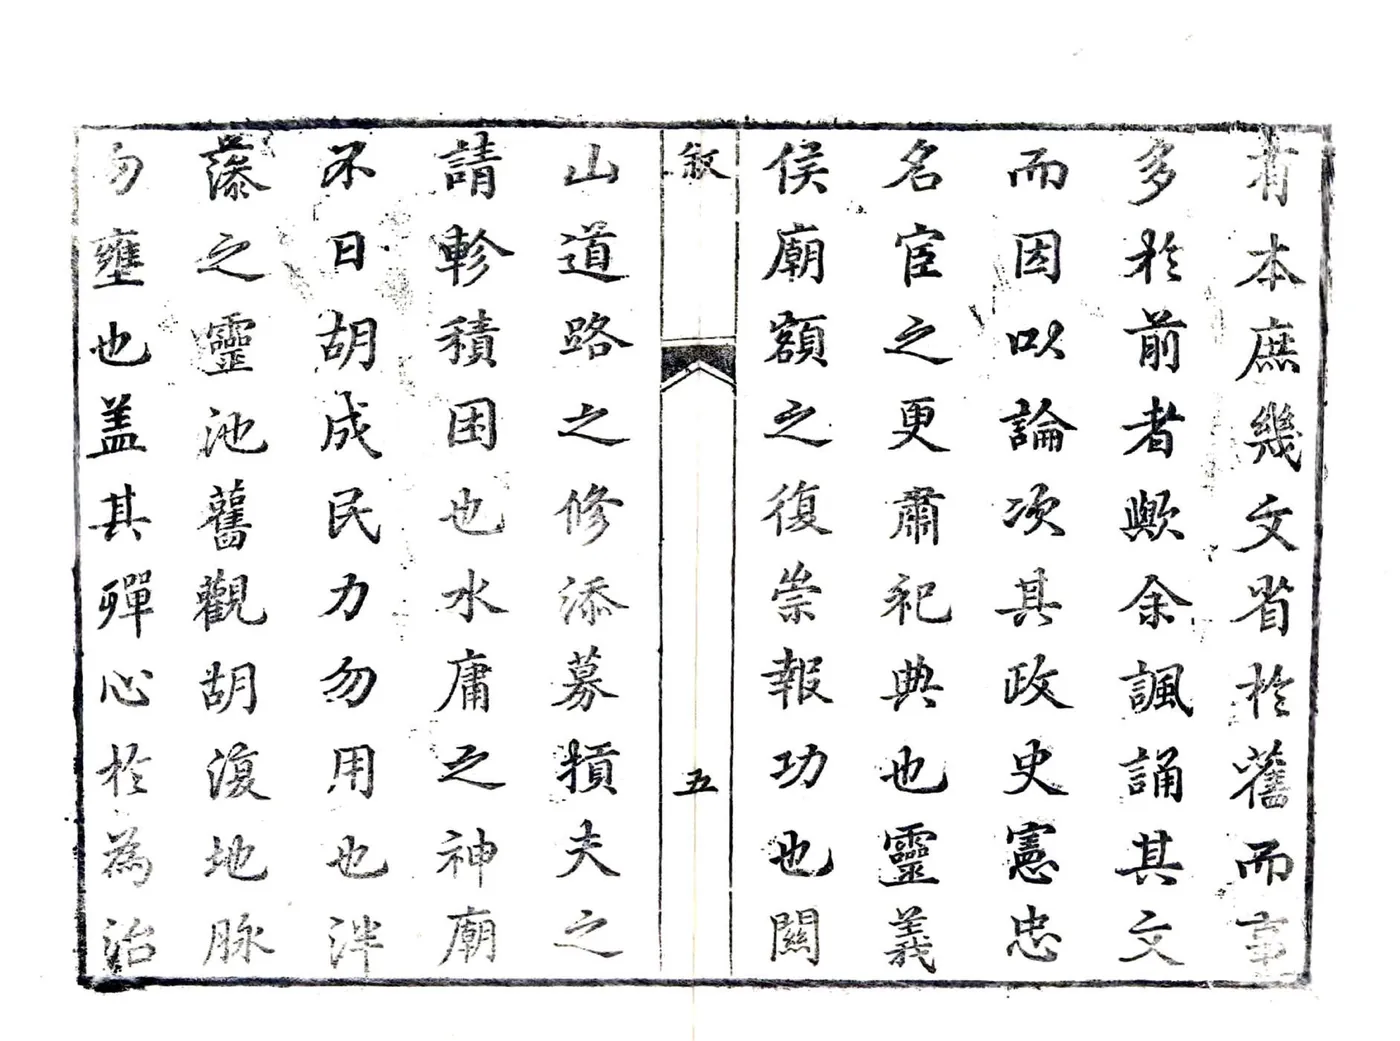 有本庶幾文省於舊而事
多於前者歟余諷誦其文
而因以論次其政史憲忠
名宦之更肅祀典也靈義
侯廟額之復崇報功也關
敘
五
山道路之修添募損夫之
請軫積困也水庸之神廟
不日胡成民力勿用也泮
藻之靈池舊觀胡復地脉
勿壅也盖其殫心於為治